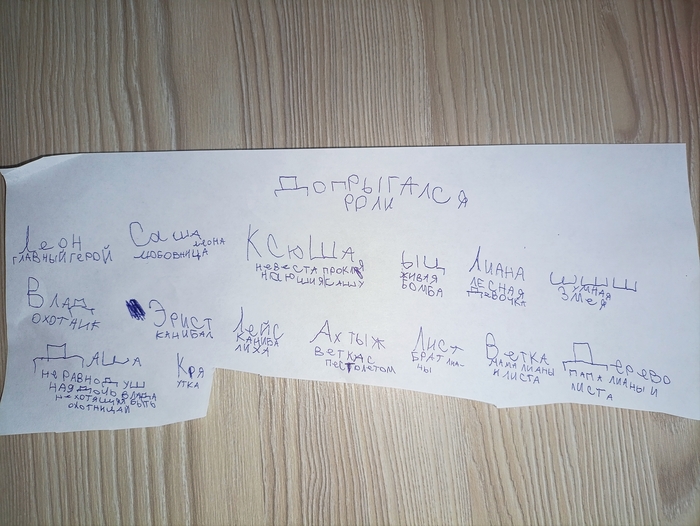 Допрыгался
роли
Леон
главный герой
Саша Леона
любовница
Ксюша
невеста прокля
нающия Сашу
ыщ
живая
бомба
Лиана
лесная
девочка
шшшш
умная
змея
Влад
охотник
Эрист
канибал
Лейс
каниба
лиха
Ахтыж
ветка с
пестолетом
Лист
брат лиа-
ны
Ветка
мама лианы
и листа
Дерево
папа лианы и
листа
Даша
неравнодуш
ная дочь влада
нехотящия быть
охотницай
Кря
утка